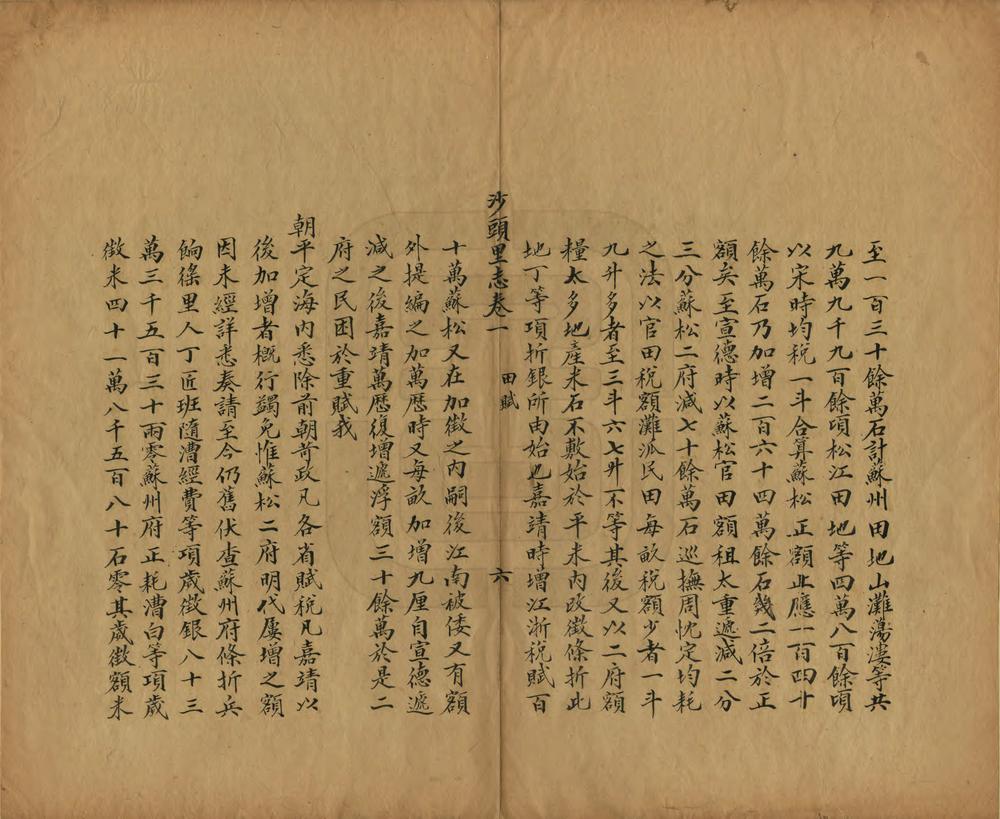 至一百三十餘萬石計蘇州田地山灘蕩漊等共
九萬九千九百餘頃松江田地等四萬八百餘頃
以宋時均税一斗合算蘇松正額止應一百四十
餘萬石乃加增二百六十四萬餘石幾二倍於正
額矣至宣德時以蘇松官田額租太重遞減二分
三分蘇松二府減七十餘萬石巡撫周忱定均耗
之法以官田税額灘派民田每畝税額少者一斗
九升多者至三斗六七升不等其後又以二府額
糧太多地產米石不敷始於平米內改徵條折此
地丁等項折銀所由始也嘉靖時增江浙税賦百
沙頭里志卷一 田賦 六
十萬蘇松又在加徵之內嗣後江南被倭又有額
外提編之加萬厯時又每畝加增九厘自宣德遞
減之後嘉靖萬厯復增遞浮額三十餘萬於是二
府之民困於重賦我
朝平定海內悉除前朝苛政凡各省賦税凡嘉靖以
後加增者概行蠲免惟蘇松二府明代屢增之額
因未經詳悉奏請至今仍舊伏查蘇州府條折兵
餉徭里人丁匠班隨漕經費等項歲徵銀八十三
萬三千五百三十兩零蘇州府正耗漕白等項歲
徵米四十一萬八千五百八十石零其歲徵額米